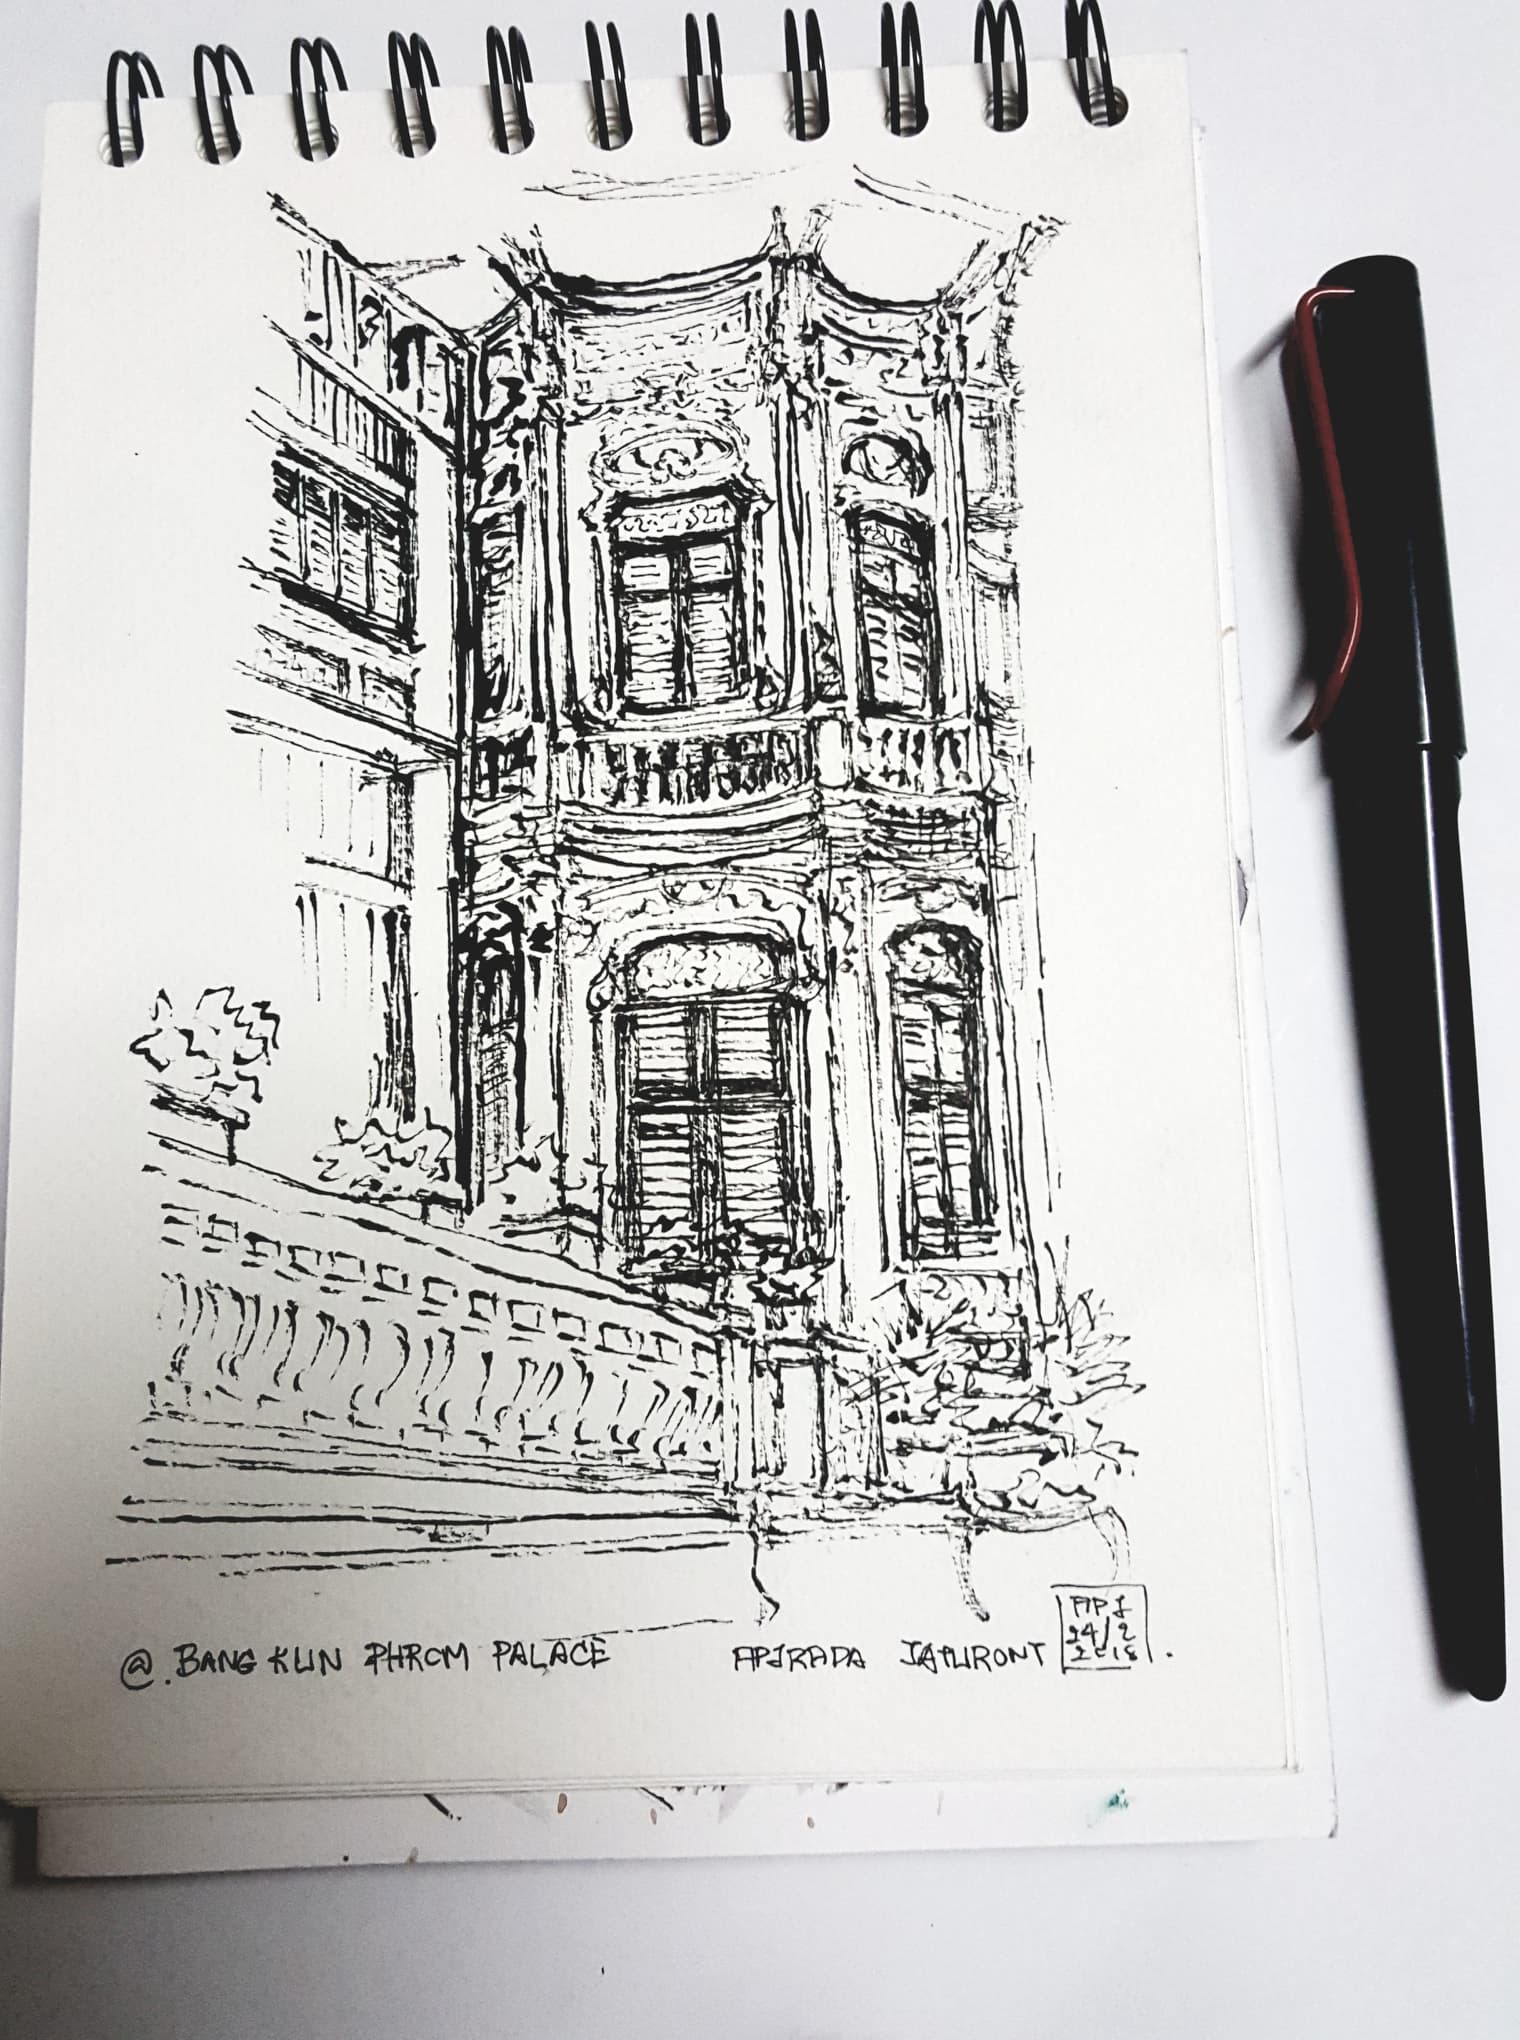 @. BANG KUN PHROM PALACE
APIRADA JATURONT
API
24/2
2018